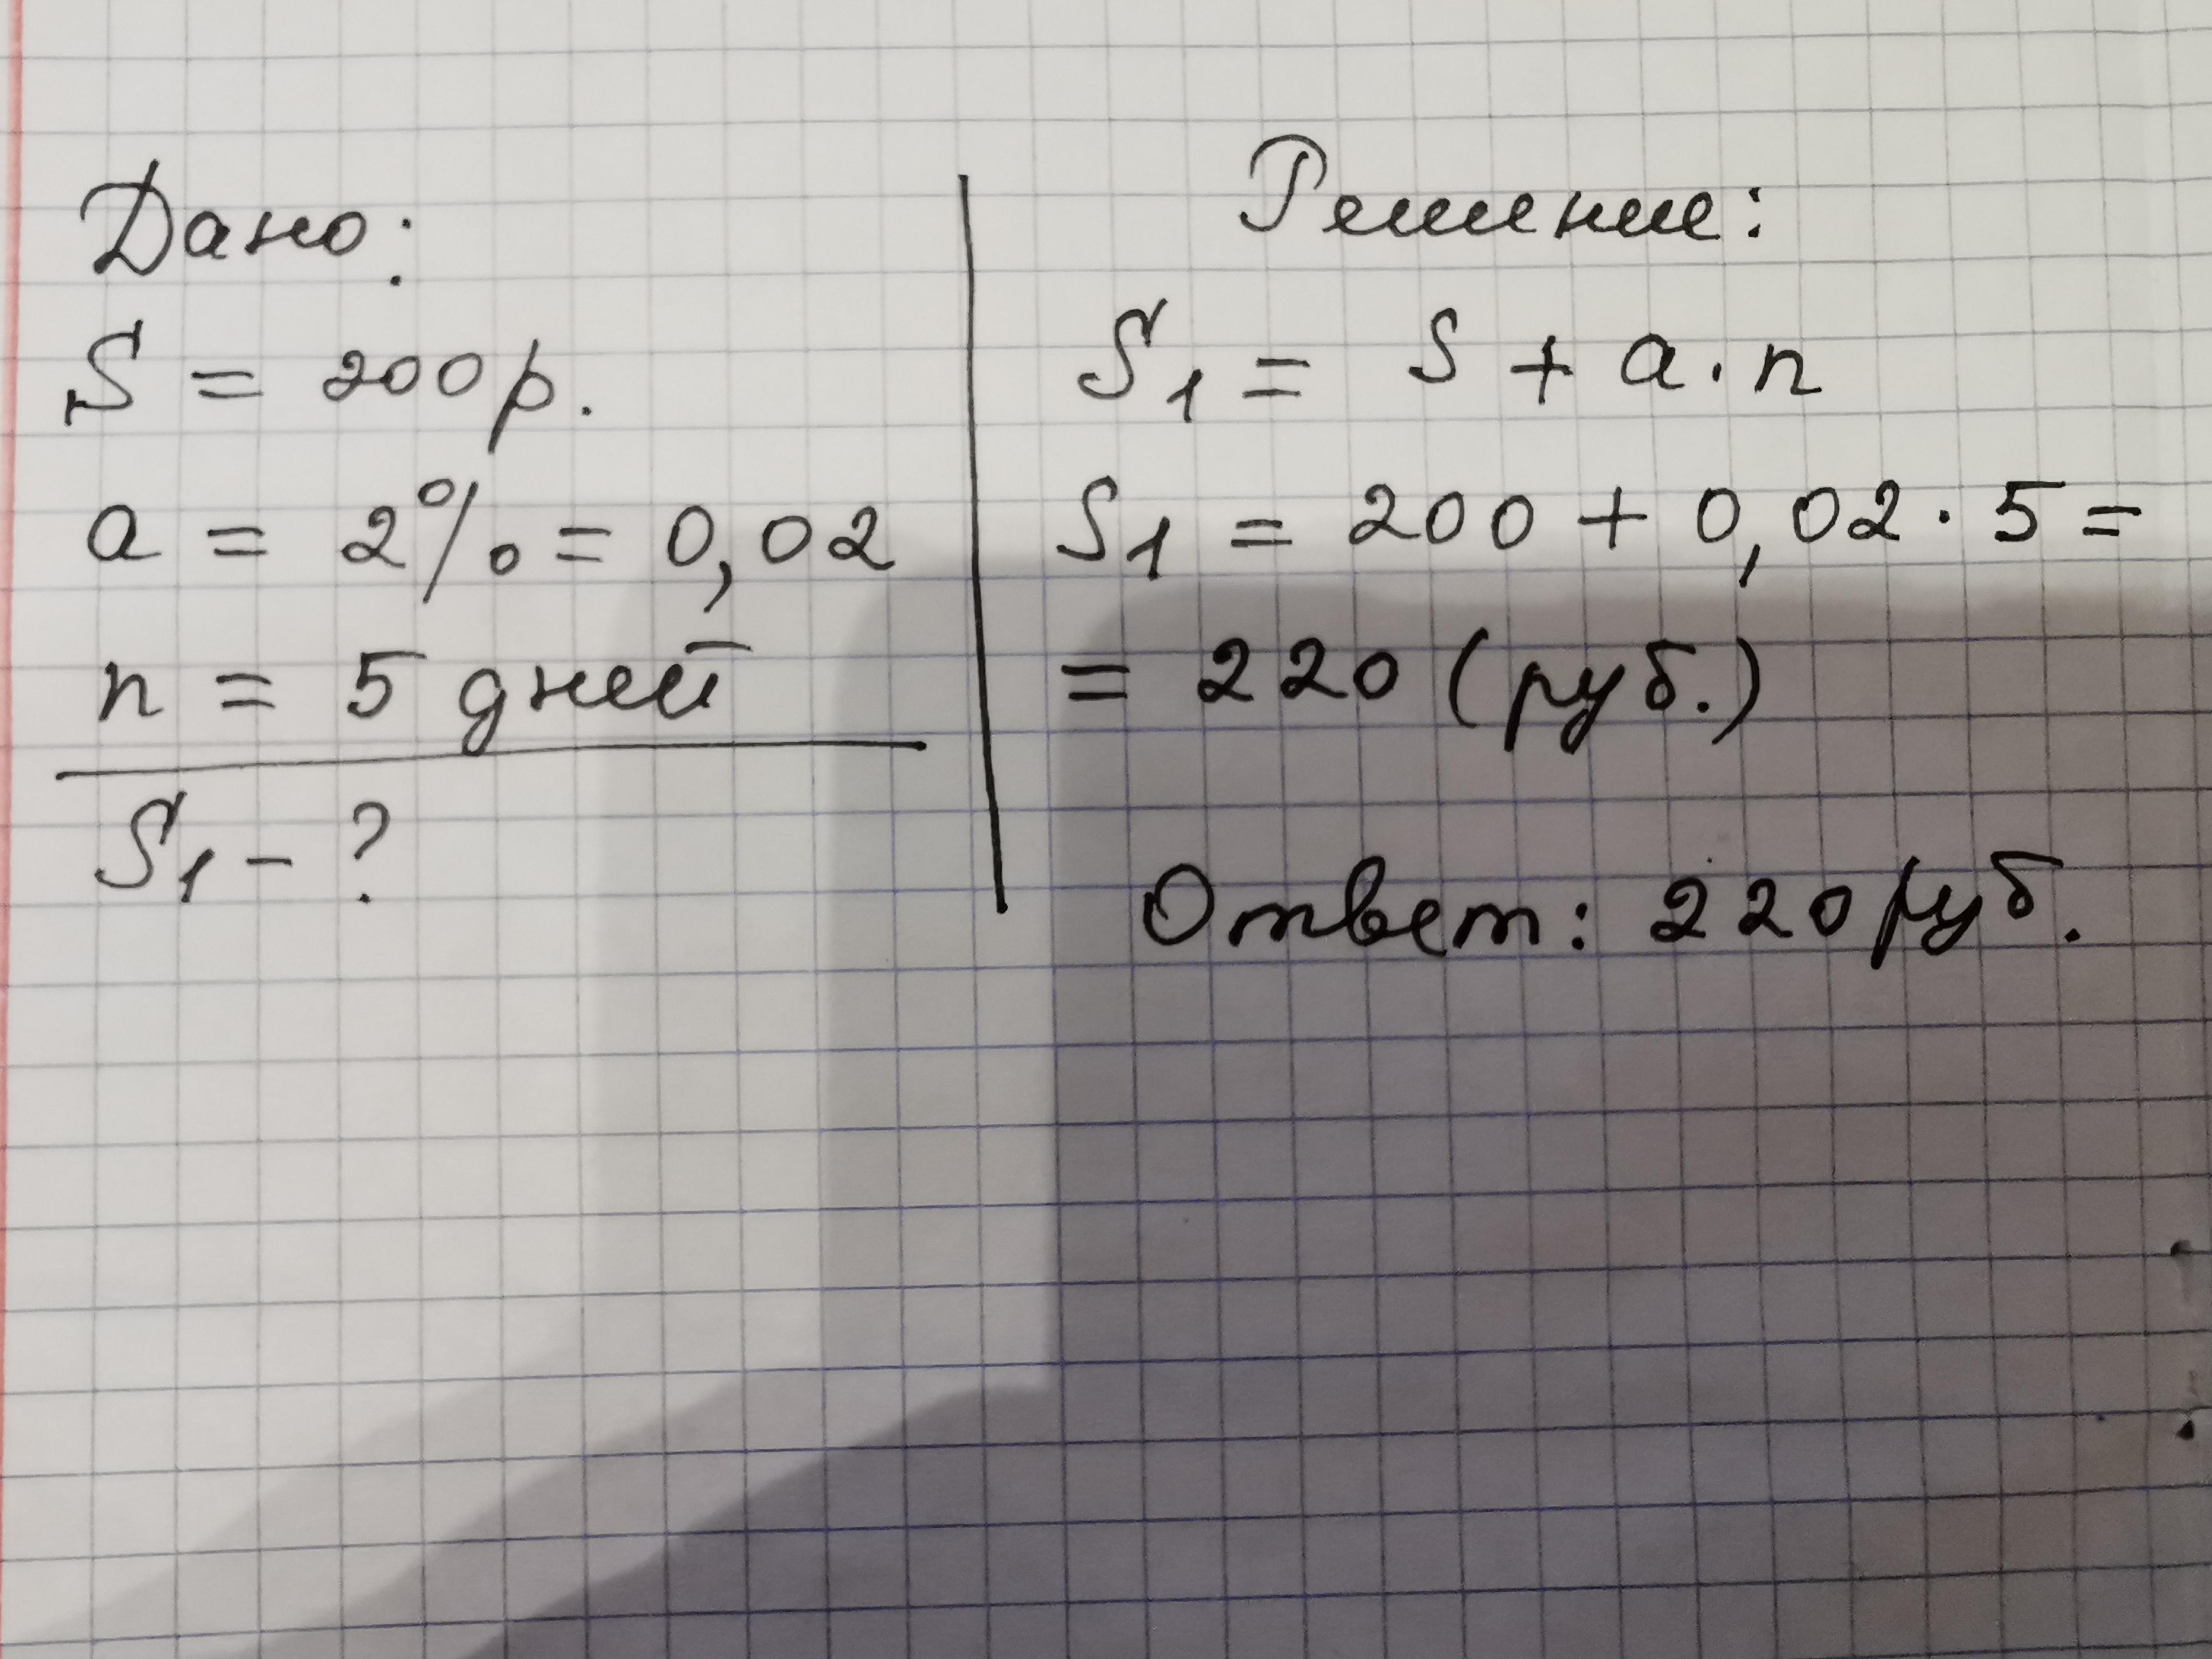 Дано:
S = 200 р.
a = 2% = 0,02
n = 5 дней
S1 - ?
Решение:
S1 = S + a · n
S1 = 200 + 0,02 · 5 =
= 220 (руб.)
Ответ: 220 руб.